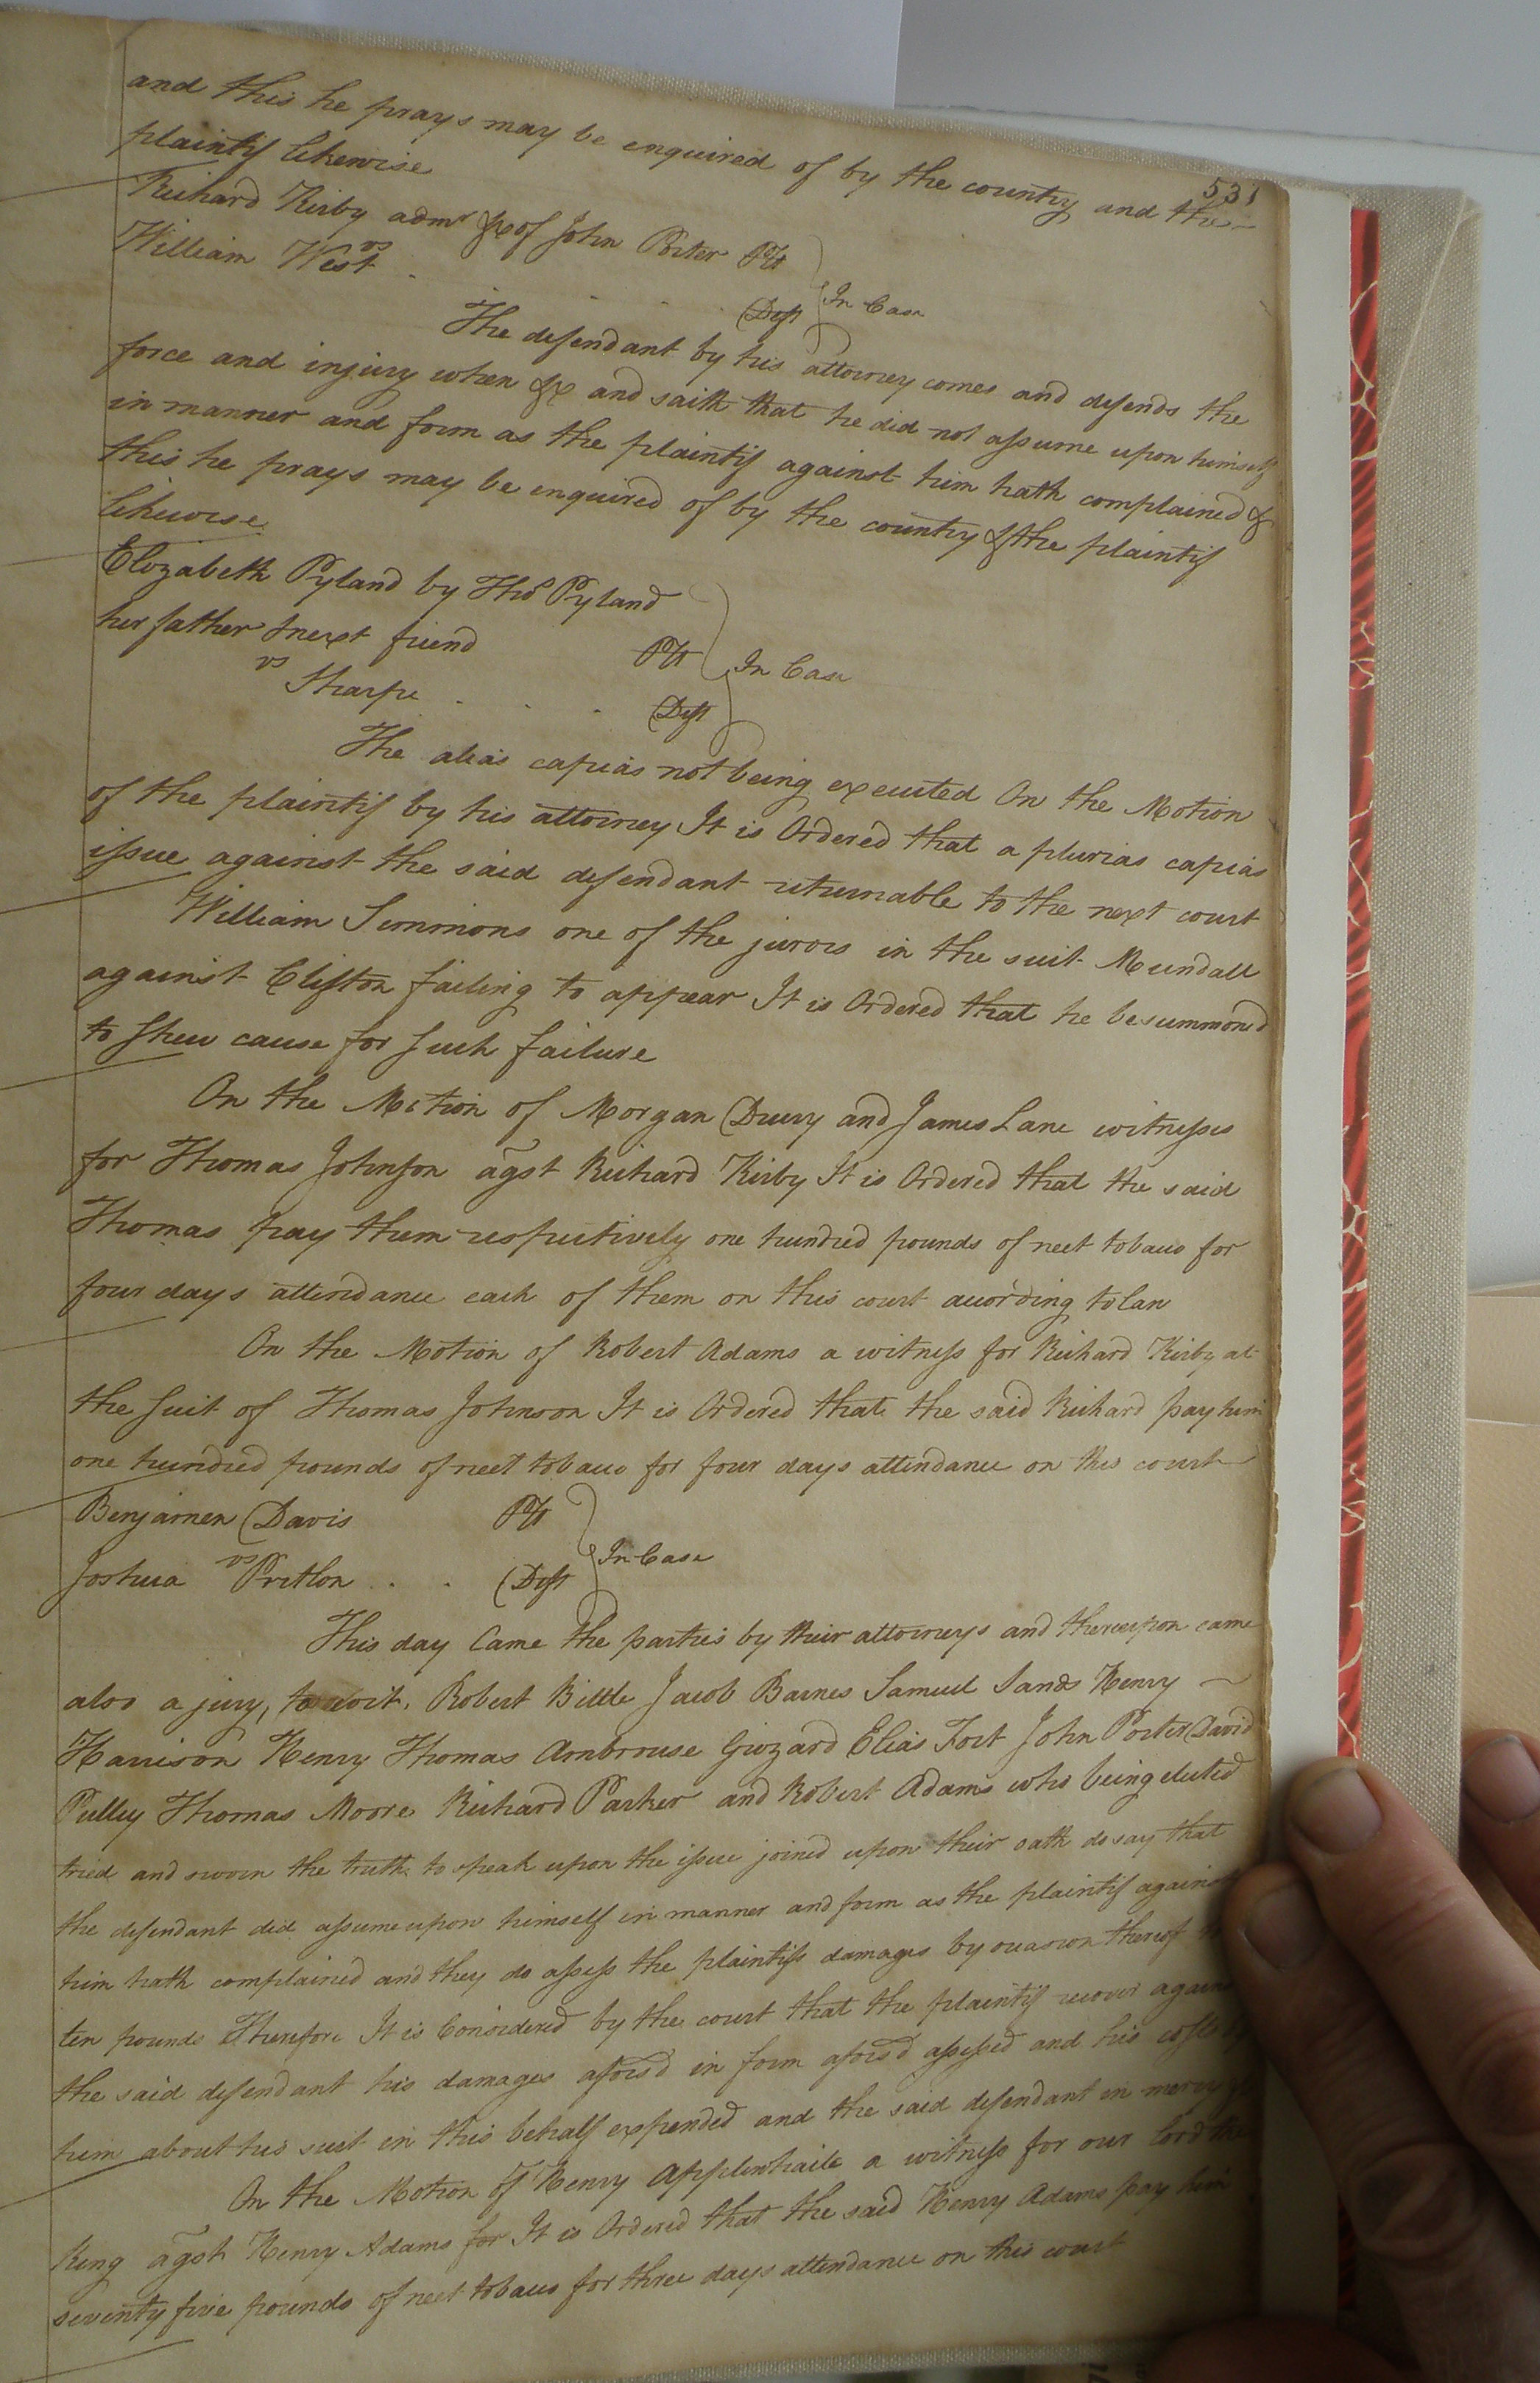 531
and this he prays may be enquired of by the country and the
plaintif likewise
Richard Kirby admr &c of John Porter Plt
vs
William West . . . . Deft
In Case
The defendant by his attorney comes and defends the
force and injury when &c and saith that he did not assume upon himself
in manner and form as the plaintif against him hath complained &
this he prays may be enquired of by the country & the plaintif
likewise
Elizabeth Pyland by Thos Pyland
her father & next friend Plt
vs
Tharpe . . . Deft
In Case
The alias capias not being executed On the Motion
of the plaintif by his attorney It is Ordered that a plurias capias
issue against the said defendant returnable to the next court
William Simmons one of the jurors in the suit Mundall
against Clifton failing to appear It is Ordered that he be summoned
to shew cause for such failure
On the Motion of Morgan Drury and James Lane witnesses
for Thomas Johnson agst Richard Kirby It is Ordered that the said
Thomas pay them respectively one hundred pounds of neet tobacco for
four days attendance each of them on this court according to law
On the Motion of Robert Adams a witness for Richard Kirby at
the suit of Thomas Johnson It is Ordered that the said Richard pay him
one hundred pounds of neet tobacco for four days attendance on this court
Benjamen Davis Plt
vs
Joshua Pretlon . . Deft
In Case
This day Came the parties by their attorneys and thereupon came
also a jury, to wit, Robert Bittle Jacob Barnes Samuel Sands Henry
Harrison Henry Thomas Ambrouse Grizard Elias Fort John Porter David
Pulley Thomas Moore Richard Parker and Robert Adams who being elected
tried and sworn the truth to speak upon the issue joined upon their oath do say that
the defendant did assume upon himself in manner and form as the plaintif against
him hath complained and they do assess the plaintifs damages by occasion thereof to
ten pounds Therefore It is Considered by the court that the plaintif recover against
the said defendant his damages aforesd in form aforesd assessed and his costs by
him about his suit in this behalf expended and the said defendant in mercy &c
On the Motion of Henry Applewhaite a witness for our lord the
King agst Henry Adams for It is Ordered that the said Henry Adams pay him
seventy five pounds of neet tobacco for three days attendance on this court